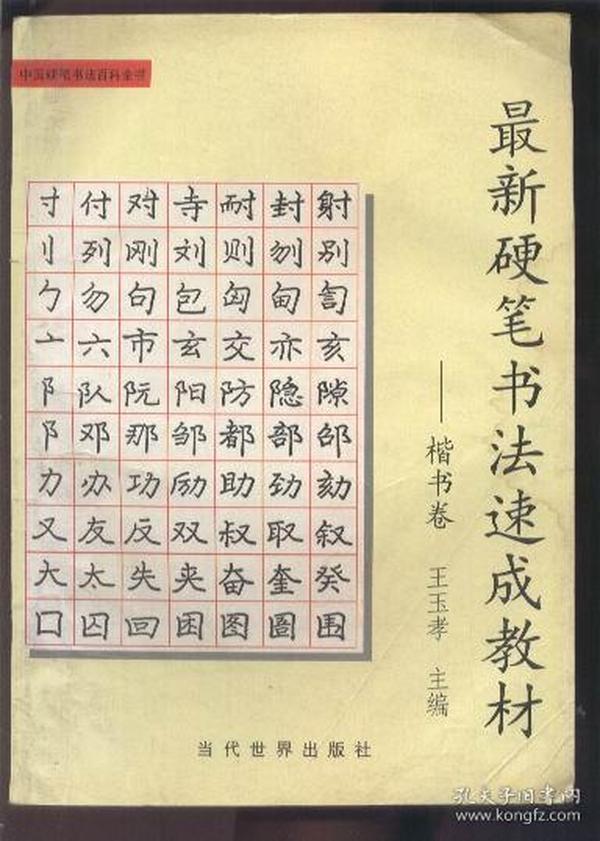 中国硬笔书法百科全书
最新硬笔书法速成教材
——楷书卷 王玉孝 主编
寸付对寺耐封射
刂列刚刘则刎别
勹勿句包匈甸訇
亠六市玄交亦亥
阝队阮阳防隐隙
阝邓那邹都部邵
力办功励助劲劾
又友反双叔取叙
大太失夹奋奎癸
口囚回困图圄围
当代世界出版社
孔夫子旧书网
www.kongfz.com